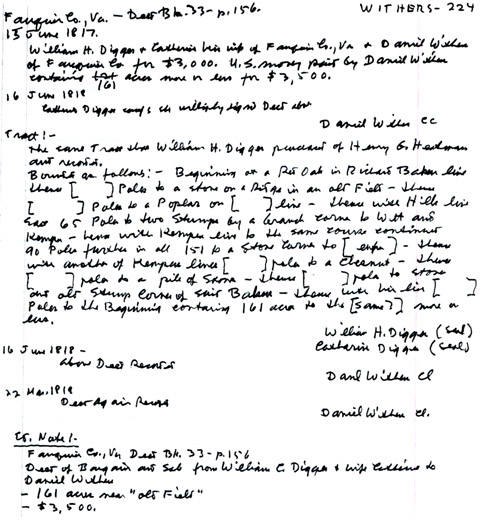 Fauquier Co., Va. – Deed Bk. 33 – p. 156.
WITHERS - 224
13 June 1817.
William H. Digges & Catherine his wife of Fauquier Co., Va & Daniel Withers
of Fauquier Co for $3,000. U.S. money paid by Daniel Withers
containing 161 acres more or less for $3,500.
16 June 1818
Catherine Digges
Daniel Withers CC
Tract:-
The same Tract that William H. Digges purchased of Henry G.
and recorded.
Bounded as follows:- Beginning at a Red Oak in Richard Bakers line
thence [ ] Poles to a stone on a Ridge in an old Field – thence
[ ] Poles to a Poplar on [ ] line – thence with Hills line
East 65 Poles to two Stumps by a branch corner to Witt and
Kemper – thence with Kempers line to the same course continued
90 Poles further in all 151 to a Stone Corner to [ ] – thence
with another of Kempers lines [ ] poles to a Chesnut – thence
[ ] poles to a pile of Stone – thence [ ] poles to stone
and old Stump Corner of said Bakers – thence with his line [ ]
Poles to the Beginning containing 161 acres to the [same?] more or
less.
William H. Digges (Seal)
Catharine Digges (Seal)
16 June 1818 –
Above Deed Recorded
Danl Withers Cl
22 Mar. 1819
Deed Again Record
Daniel Withers Cl.
Ed. Note:-
Fauquier Co., Va Deed Bk. 33 - p. 156
Deed of Bargain and Sale from William C. Digges & wife Catherine to
Daniel Withers
- 161 acres near "old Field"
- $3,500.